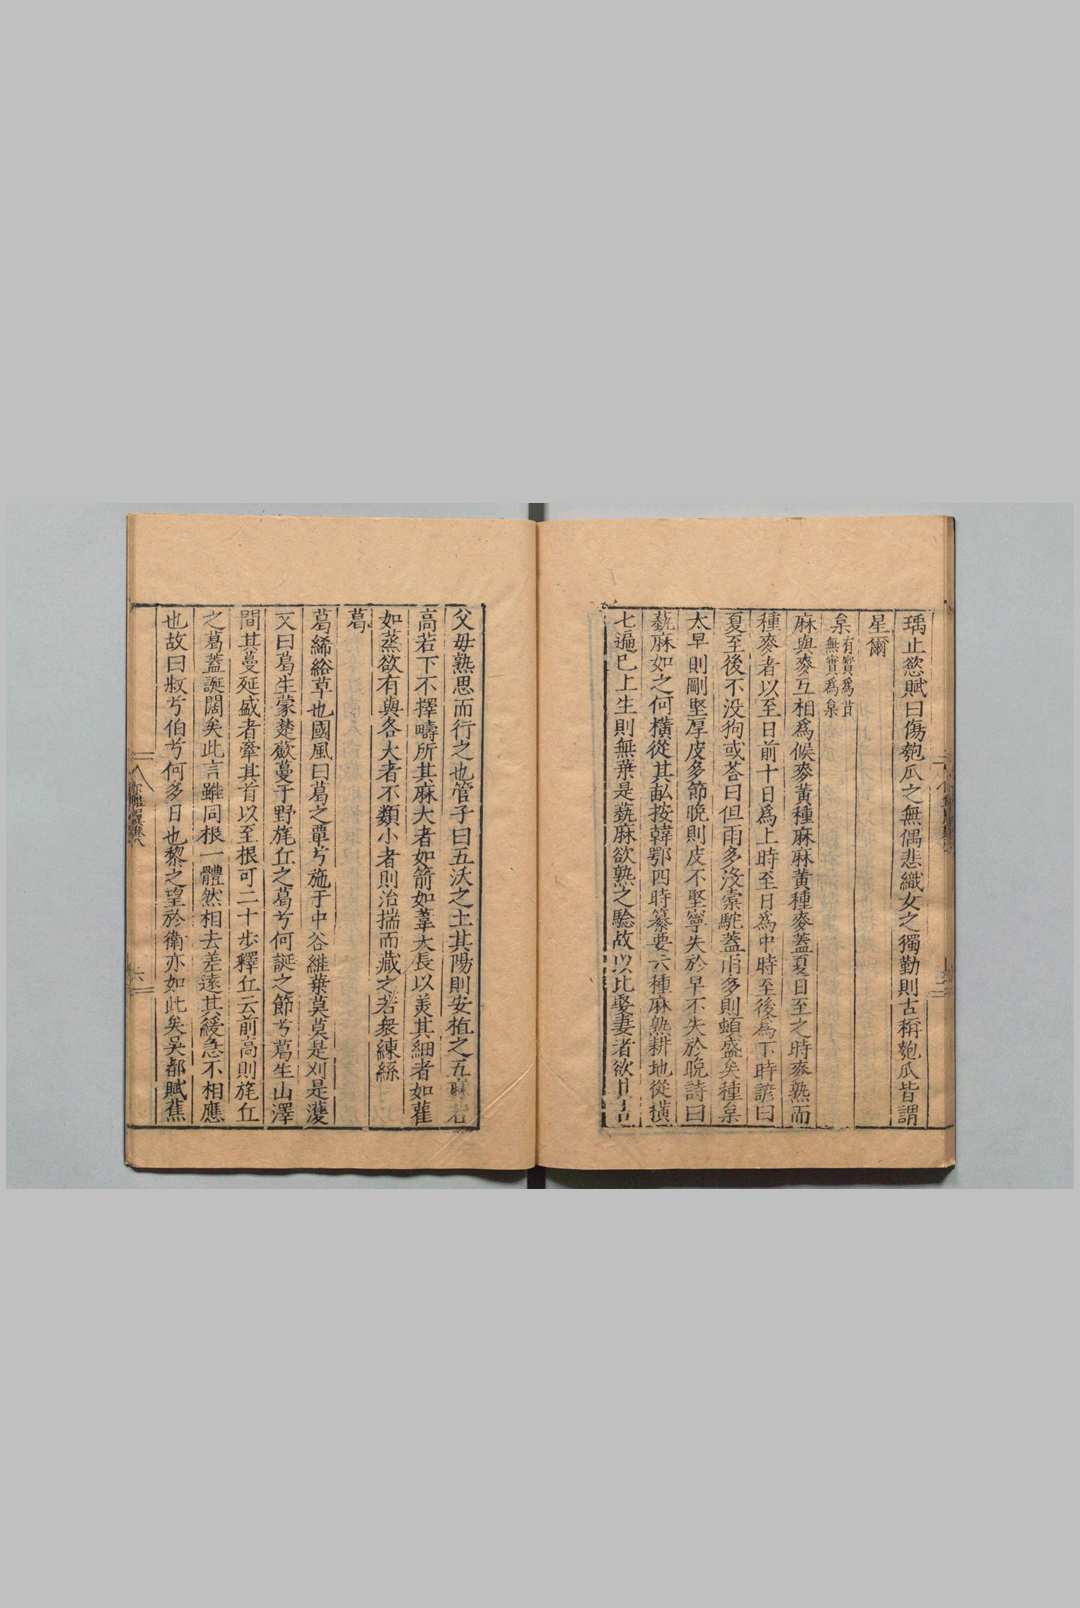 瑀止慾賦曰傷匏瓜之無偶悲織女之獨勤則古稱匏瓜皆謂
星爾
枲有實爲苴無實爲枲
麻與麥互相爲候麥黃種麻麻黃種麥蓋夏日至之時麥熟而
種麥者以至日前十日爲上時至日爲中時至後爲下時諺曰
夏至後不没狗或荅曰但雨多没橐駝蓋雨多則蝢盛矣種枲
太早則剛堅厚皮多節晚則皮不堅寧失於早不失於晚詩曰
蓺麻如之何橫從其畝按韓鄂四時纂要云種麻熟耕地從橫
七遍已上生則無葉是蓺麻欲熟之驗故以比娶妻者欲
父毋熟思而行之也管子曰五沃之土其陽則安植之五麻若
高若下不擇疇所其麻大者如箭如葦大長以美其細者如雚
如蒸欲有與各大者不類小者則治揣而藏之若衆練絲
葛
葛絺綌草也國風曰葛之覃兮施于中谷維葉莫莫是刈是濩
又曰葛生蒙楚蘞蔓于野旄丘之葛兮何誕之節兮葛生山澤
間其蔓延盛者牽其首以至根可二十步釋丘云前高則旄丘
之葛蓋誕闊矣此言雖同根一體然相去差遠其緩急不相應
也故曰叔兮伯兮何多日也黎之望於衛亦如此矣吳都賦蕉